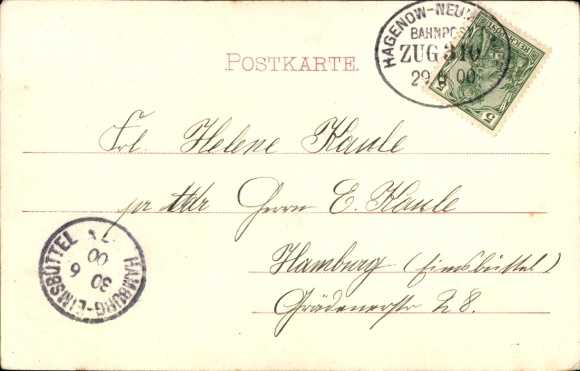 POSTKARTE.
HAGENOW-NEUM
BAHNPOST
ZUG 310
29 6 00
REICHSPOST
5 5
Frl. Helene Kaule
pr Adr Herrn E. Kaule
Hamburg (Eimsbüttel)
Grädenerstr 28.
HAMBURG-EIMSBÜTTEL
30 6
00